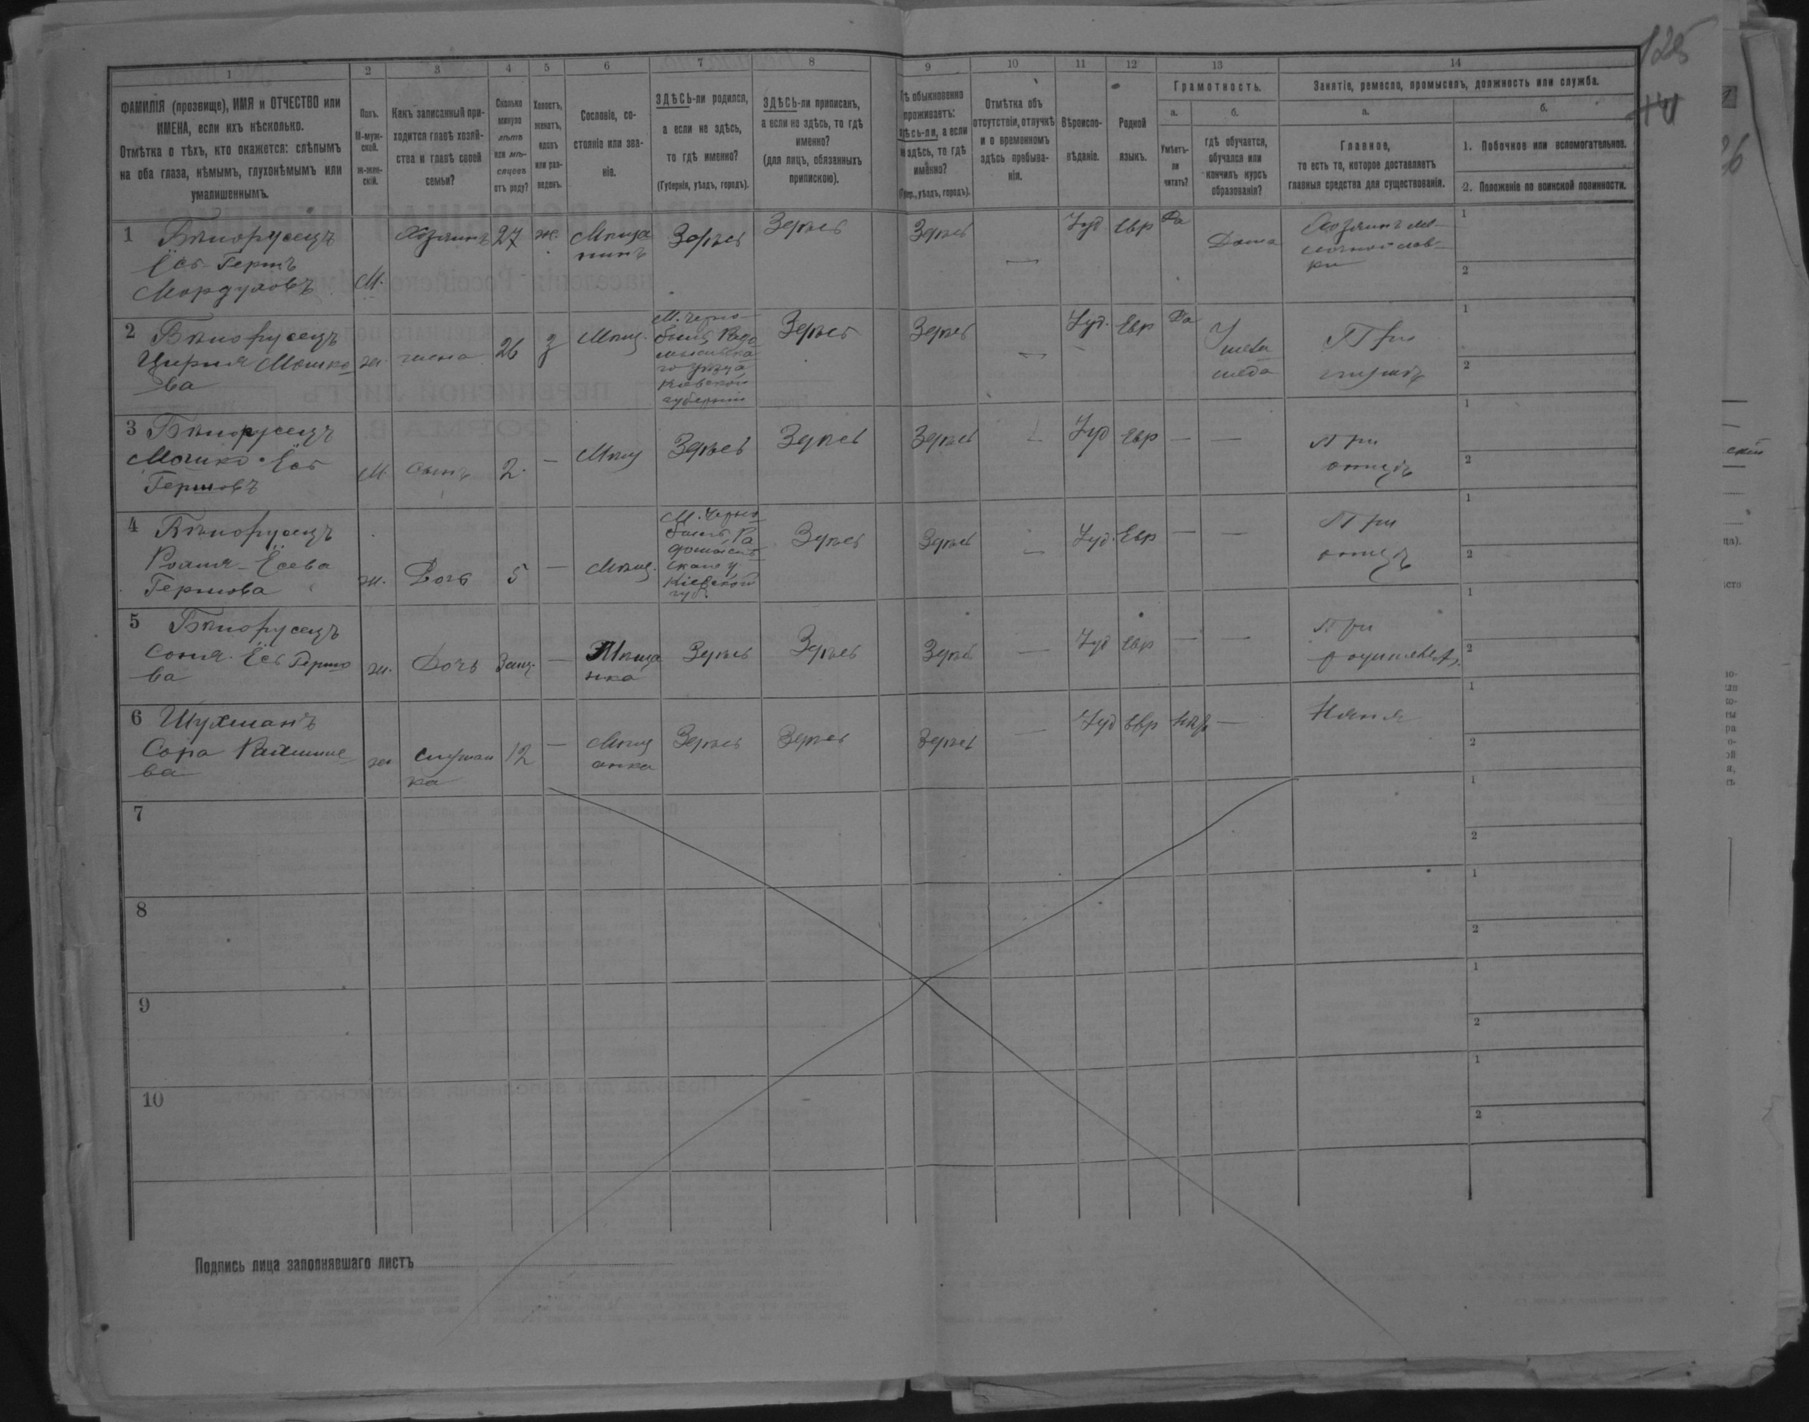 125
1
2
3
4
5
6
7
8
9
10
11
12
13
14
ФАМИЛІЯ (прозвище), ИМЯ и ОТЧЕСТВО или
ИМЕНА, если ихъ нѣсколько.
Отмѣтка о тѣхъ, кто окажется: слѣпымъ
на оба глаза, нѣмымъ, глухонѣмымъ или
умалишеннымъ.
Полъ.
М-муж-
ской.
Ж-жен-
скій.
Какъ записанный при-
ходится главѣ хозяй-
ства и главѣ своей
семьи?
Сколько
минуло
лѣтъ
или мѣ-
сяцевъ
отъ роду?
Холостъ,
женатъ,
вдовъ
или раз-
веденъ.
Сословіе, со-
стояніе или зва-
ніе.
ЗДѢСЬ-ли родился,
а если не здѣсь,
то гдѣ именно?
(Губернія, уѣздъ, городъ).
ЗДѢСЬ-ли приписанъ,
а если не здѣсь, то гдѣ
именно?
(для лицъ, обязанныхъ
припискою).
обыкновенно
проживаетъ:
здѣсь-ли, а если
не здѣсь, то гдѣ
именно?
(Губ., уѣздъ, городъ).
Отмѣтка объ
отсутствіи, отлучкѣ
и о временномъ
здѣсь пребыва-
ніи.
Вѣроиспо-
вѣданіе.
Родной
языкъ.
Грамотность.
а.
б.
Умѣетъ-
ли
читать?
гдѣ обучается,
обучался или
кончилъ курсъ
образованія?
Занятіе, ремесло, промыселъ, должность или служба.
а.
б.
Главное,
то есть то, которое доставляетъ
главныя средства для существованія.
1. Побочное или вспомогательное.
2. Положеніе по воинской повинности.
1 Бѣлорусецъ
Ёсъ-Гершъ
Мордуховъ
М.
Хозяинъ
27
ж.
Мѣща
нинъ
Здѣсь
Здѣсь
Здѣсь
—
Іуд
Евр
Да
Дома
Хозяинъ мо
лочной лав-
ки
1
2
2 Бѣлорусецъ
Мошко
ва
ж
жена
26
з
Мѣщ.
М. Черно-
Радо
мысльска
го уѣзда
Кіевской
губерніи
Здѣсь
Здѣсь
—
Іуд.
Евр
Да
При
мужѣ
1
2
3 Бѣлорусецъ
Мошко-Ёсъ
Гершовъ
М
сынъ
2
—
Мѣщ
Здѣсь
Здѣсь
Здѣсь
Іуд
Евр
—
—
При
отцѣ
1
2
4 Бѣлорусецъ
Ёсева
Гершова
ж.
Дочь
5
—
Мѣщ.
М. Черно
Ра
домысль
скаго у
Кіевской
губ.
Здѣсь
Здѣсь
—
Іуд.
Евр
—
—
При
отцѣ
1
2
5 Бѣлорусецъ
Соня-Ёсъ Гершо
ва
ж.
Дочь
—
Мѣща
нка
Здѣсь
Здѣсь
Здѣсь
—
Іуд
Евр
—
—
При
родителяхъ
1
2
6 Шухманъ
Сора
ва
ж
служан
ка
12
—
Мѣщ
анка
Здѣсь
Здѣсь
Здѣсь
—
Іуд
Евр
нѣтъ
—
Няня
1
2
7
1
2
8
1
2
9
1
2
10
1
2
Подпись лица заполнявшаго листъ